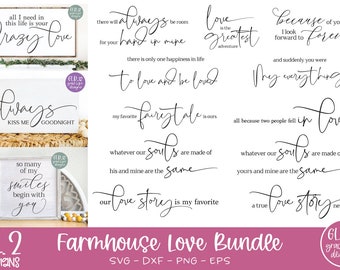 all I need in
this life is your
crazy love
always
KISS ME GOODNIGHT
so many
of my
smiles
begin with
you
there will always be room
for your hand in mine
love
is the
greatest
adventure
because of y
I look
forward to forev
there is only one happiness in life
to love and be loved
and suddenly you were
My everything
my favorite fairytale is ours
all because two people fell in love
whatever our souls are made of
his and mine are the same
whatever our souls are made of
yours and mine are the same
our love story is my favorite
a true love story ne
2
Farmhouse Love Bundle
SVG - DXF - PNG - EPS